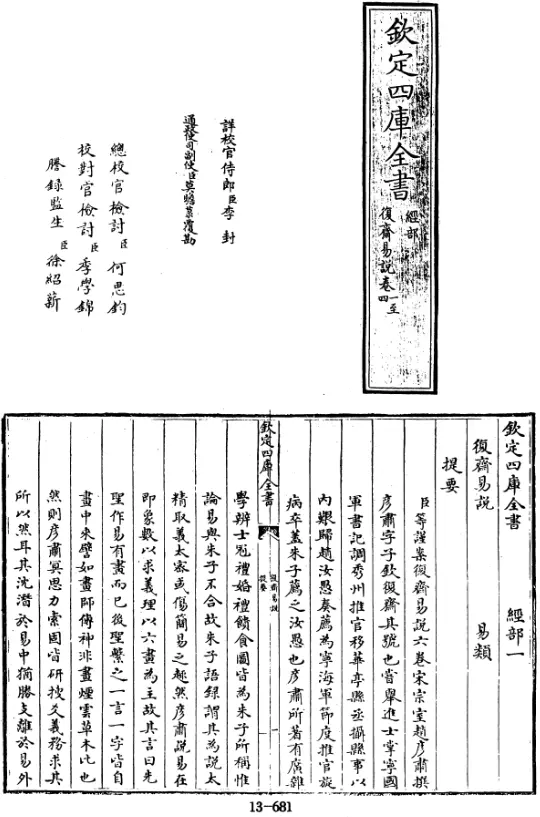 欽定四庫全書
經部
復齋易說卷一至四
詳校官侍郎臣李封
通政使司副使臣莫瞻菉覆勘
總校官檢討臣何思鈞
校對官檢討臣季學錦
謄錄監生臣徐紹薪
欽定四庫全書 經部一
復齋易說 易類
提要
臣等謹案復齋易說六卷宋宗室趙彥肅撰
彥肅字子欽復齋其號也嘗舉進士掌寧國
軍書記調秀州推官移華亭縣丞攝縣事以
內艱歸趙汝愚奏薦為寧海軍節度推官旋
病卒蓋朱子薦之汝愚也彥肅所著有廣雜
欽定四庫全書
復齋易說
提要
學辨士冠禮婚禮饋食圖皆為朱子所稱惟
論易與朱子不合故朱子語錄謂其為說太
精取義太密或傷簡易之趣然彥肅說易在
即象數以求義理以六畫為主故其言曰先
聖作易有畫而已後聖繫之一言一字皆自
畫中來譬如畫師傳神非畫煙雲草木比也
然則彥肅冥思力索固皆研搜爻義務求其
所以然耳其沈潛於易中猶勝支離於易外
13-681